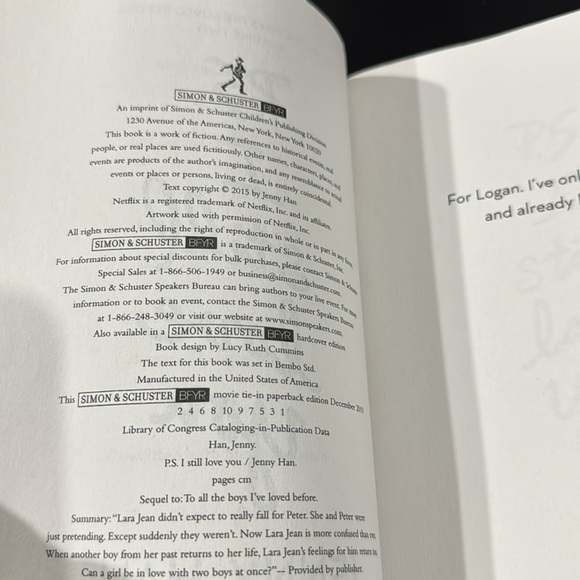 SIMON & SCHUSTER BFYR
An imprint of Simon & Schuster Children's Publishing Division
1230 Avenue of the Americas, New York, New York 10020
This book is a work of fiction. Any references to historical events, real
people, or real places are used fictitiously. Other names, characters, places, and
events are products of the author's imagination, and any resemblance to actual
events or places or persons, living or dead, is entirely coincidental.
Text copyright © 2015 by Jenny Han
Netflix is a registered trademark of Netflix, Inc. and its affiliates.
Artwork used with permission of Netflix, Inc.
All rights reserved, including the right of reproduction in whole or in part in any form.
SIMON & SCHUSTER BFYR is a trademark of Simon & Schuster, Inc.
For information about special discounts for bulk purchases, please contact Simon & Schuster
Special Sales at 1-866-506-1949 or business@simonandschuster.com.
The Simon & Schuster Speakers Bureau can bring authors to your live event. For more
information or to book an event, contact the Simon & Schuster Speakers Bureau
at 1-866-248-3049 or visit our website at www.simonspeakers.com.
Also available in a SIMON & SCHUSTER BFYR hardcover edition
Book design by Lucy Ruth Cummins
The text for this book was set in Bembo Std.
Manufactured in the United States of America
This SIMON & SCHUSTER BFYR movie tie-in paperback edition December
2 4 6 8 10 9 7 5 3 1
Library of Congress Cataloging-in-Publication Data
Han, Jenny.
P.S. I still love you / Jenny Han.
pages cm
Sequel to: To all the boys I've loved before.
Summary: "Lara Jean didn't expect to really fall for Peter. She and Peter were
just pretending. Except suddenly they weren't. Now Lara Jean is more confused than ever.
When another boy from her past returns to her life, Lara Jean's feelings for him return
Can a girl be in love with two boys at once?"— Provided by publisher.
For Logan. I've onl
and already